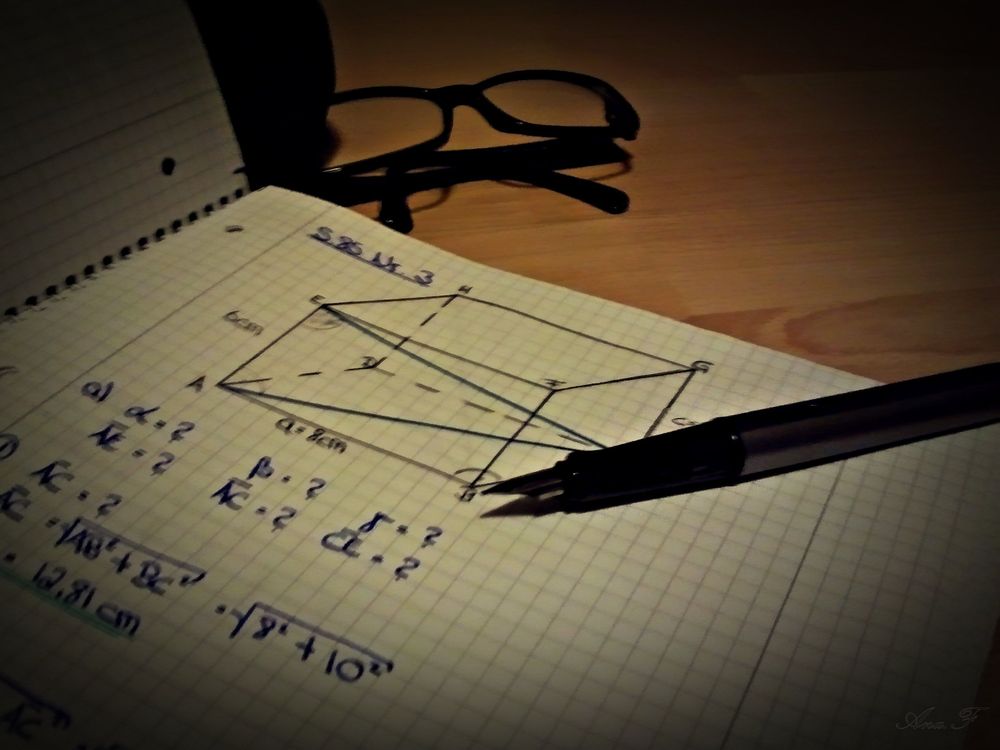 S.86 Nr. 3
E
H
6cm
D
A
G
a=8cm
B
a) α = ?
AC = ?
β = ?
AC = ?
γ = ?
AC = ?
AC = √AB² + BC² = √8² + 10²
= 12,81 cm
Ana. F